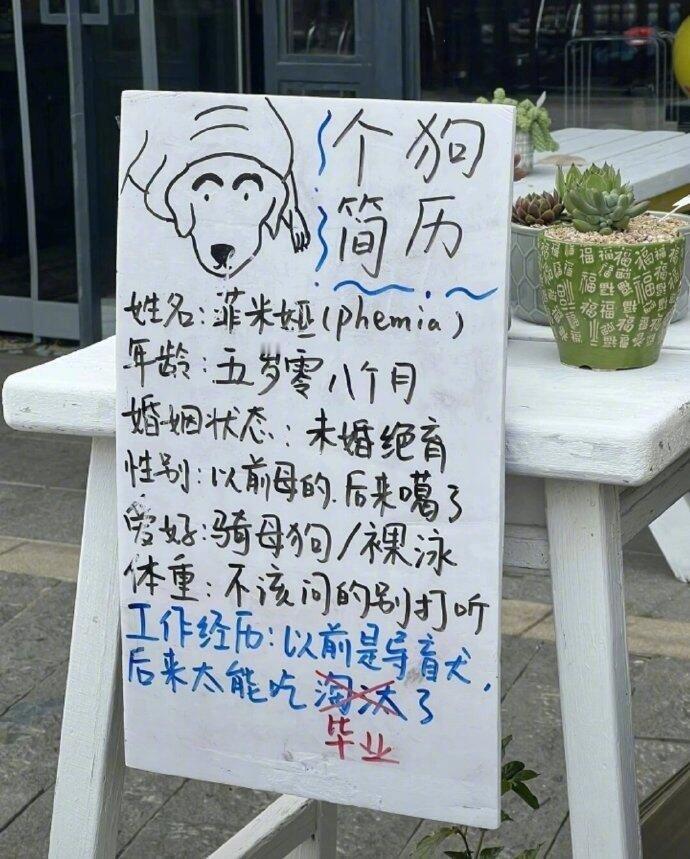 个狗
简历
姓名:菲米娅(phemia)
年龄:五岁零八个月
婚姻状态:未婚绝育
性别:以前母的.后来噶了
爱好:骑母狗/裸泳
体重:不该问的别打听
工作经历:以前是导盲犬,
后来太能吃淘汰了
毕业
福福福福福